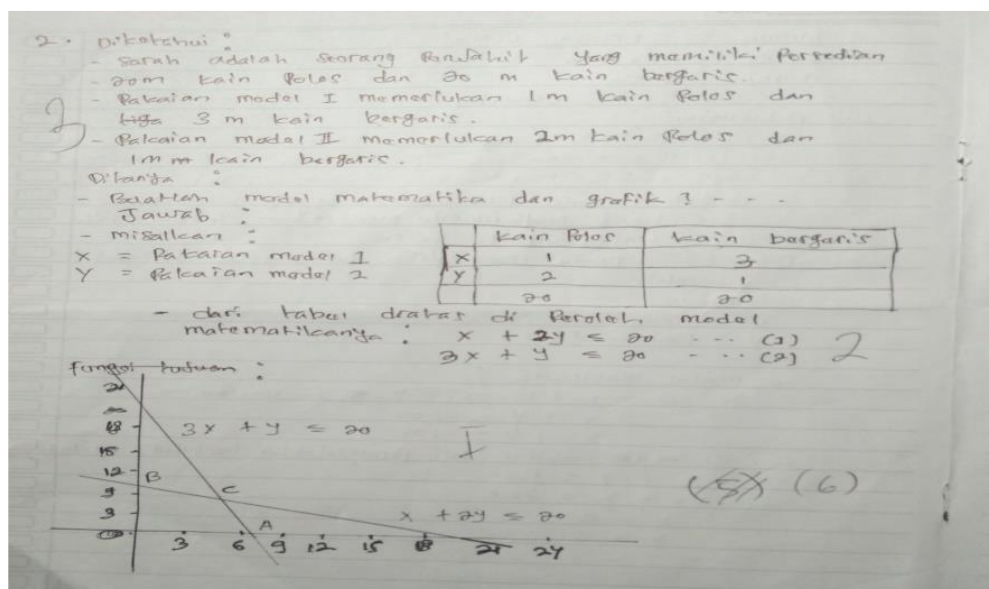 2. Diketahui :
- Sarah adalah seorang Penjahit yang memiliki Persedian
- 20m kain Polos dan 20 m kain bergaris.
- Pakaian model I memerlukan 1 m kain Polos dan
3 m kain bergaris.
- Pakaian model II memerlukan 2m kain Polos dan
1m m kain bergaris.
3
Ditanya :
- Buatlah model matematika dan grafik ? - - -
Jawab :
- misalkan :
X = Pakaian model 1
Y = Pakaian model 2
kain Polos kain bergaris
X 1 3
Y 2 1
20 20
- dari tabel diatas di Peroleh model
matematikanya : x + 2y ≤ 20 - - - (1)
3x + y ≤ 20 - - - (2) 2
fungsi tujuan :
21
18
15
12
9
3
3x + y ≤ 20
I
B
C
A
x + 2y ≤ 20
3 6 9 12 15 18 21 24
(6)